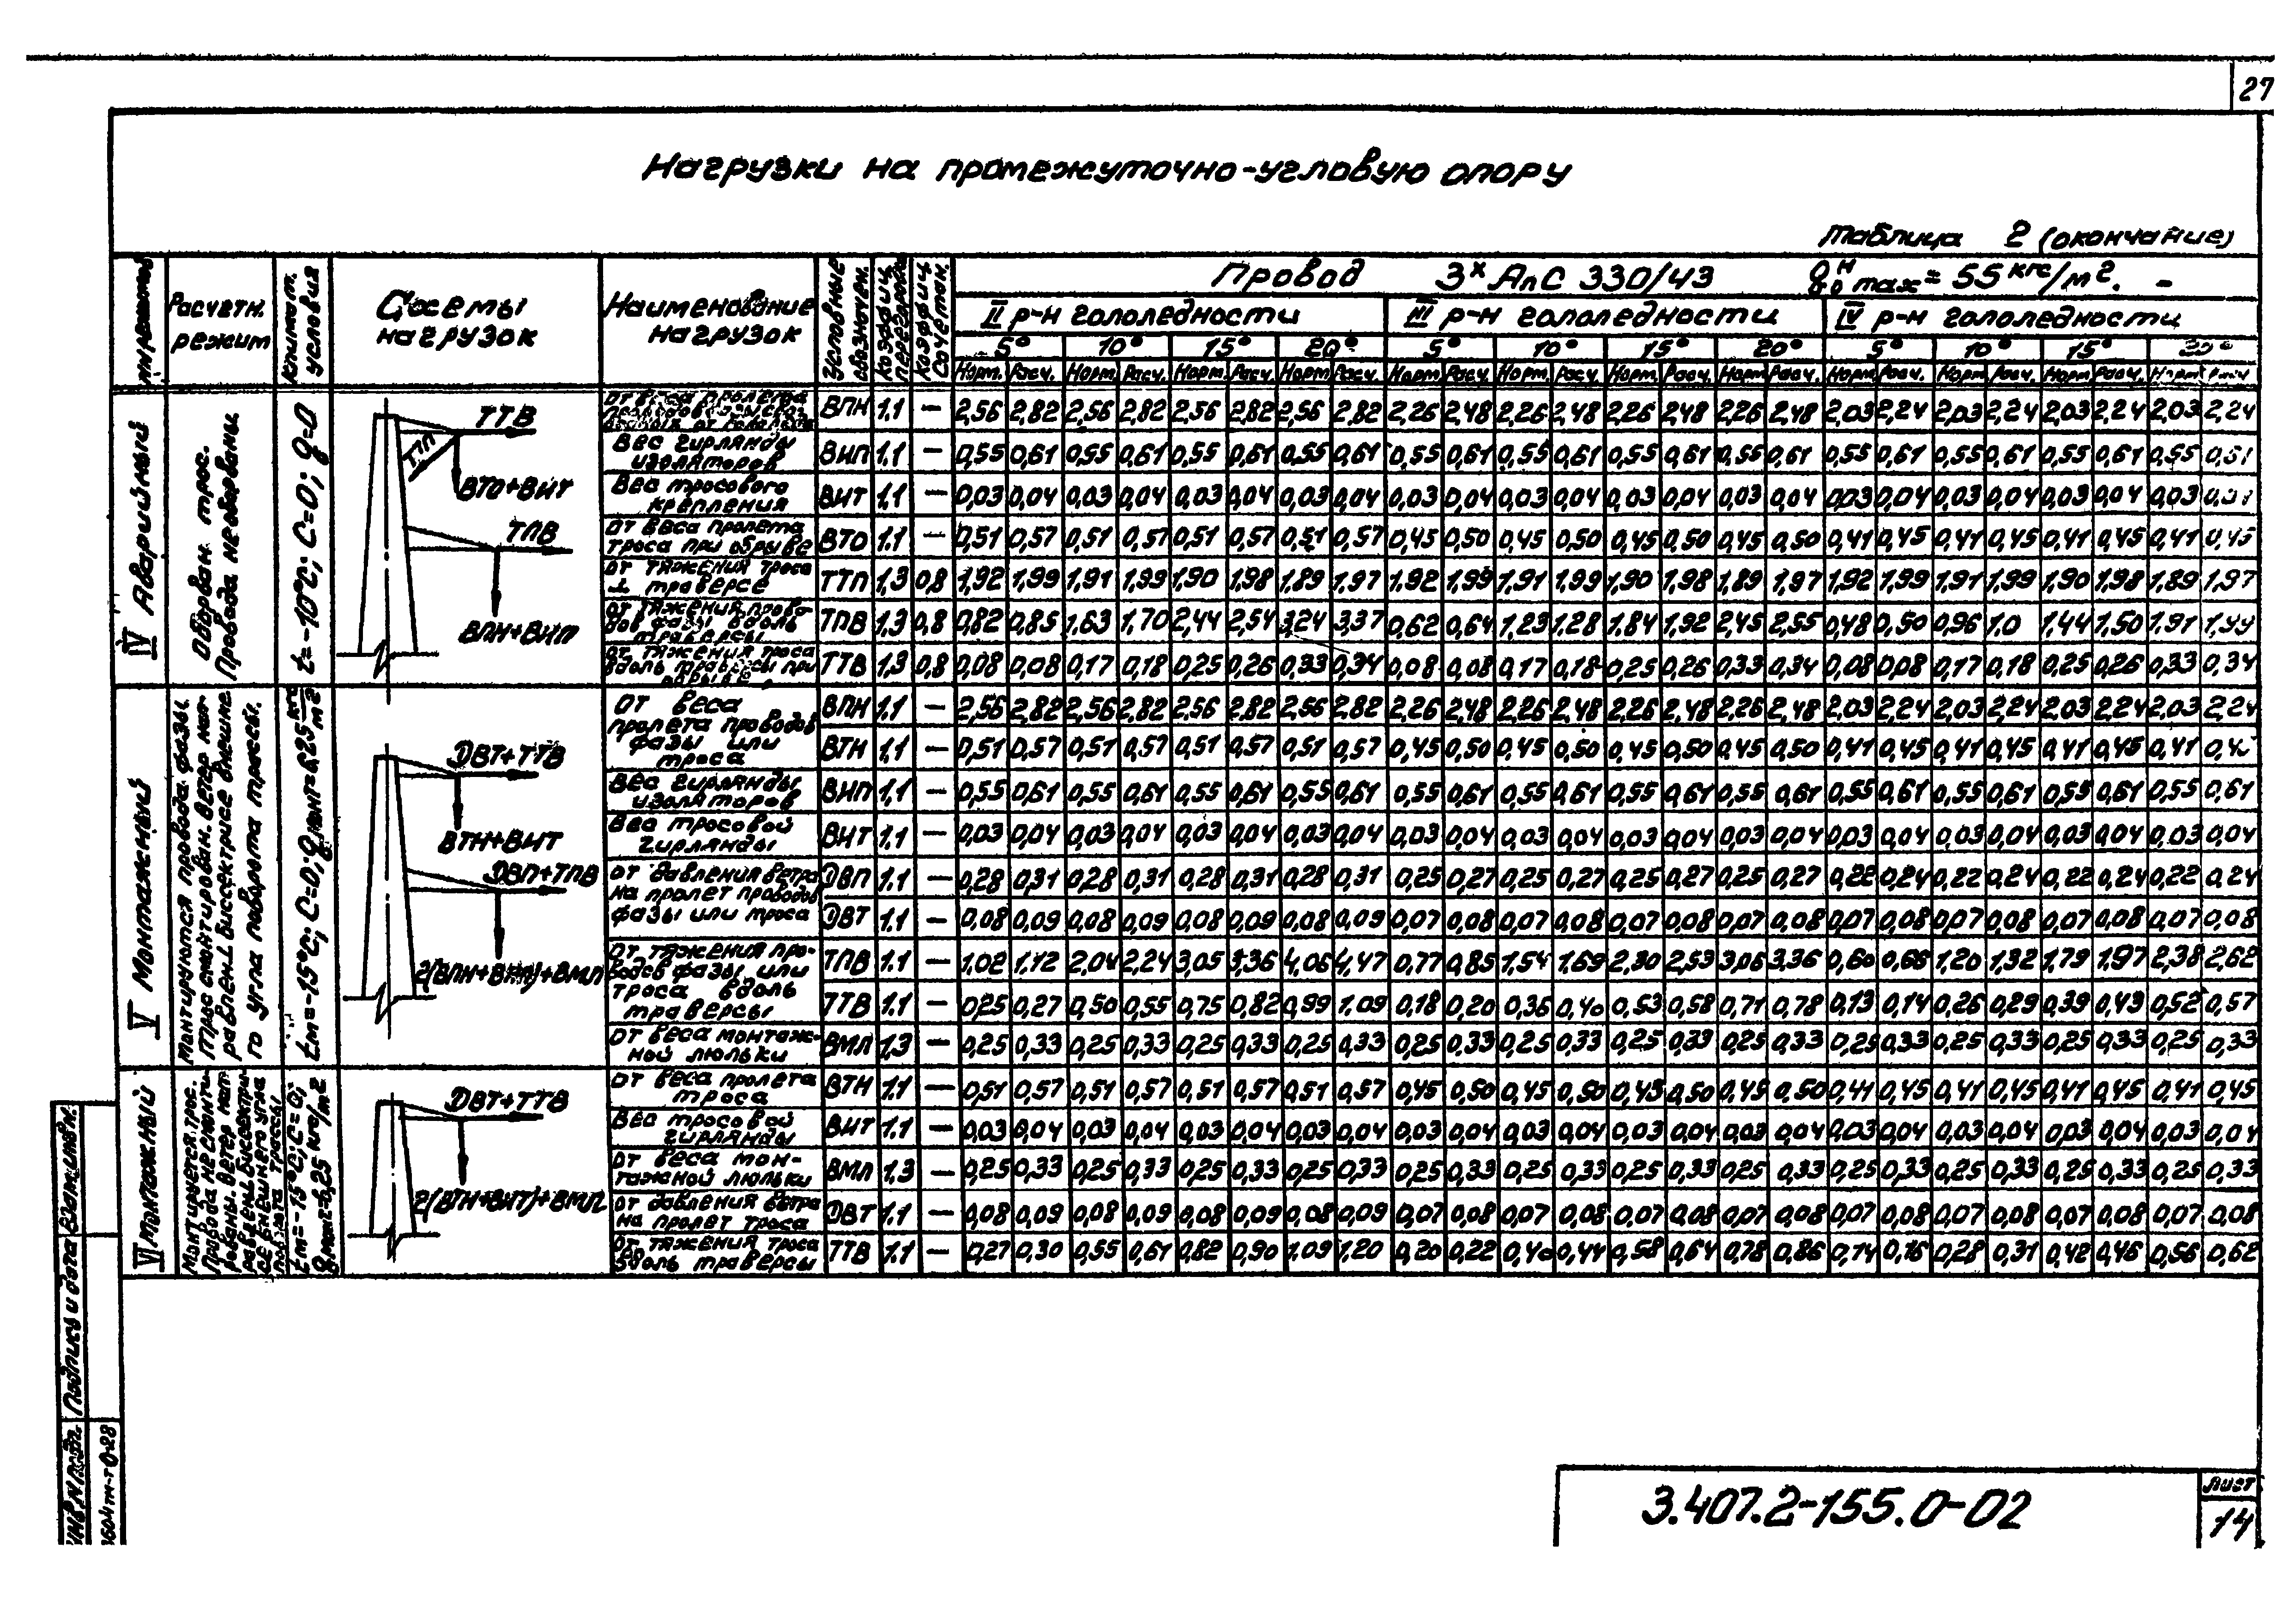 27
Нагрузки на промежуточно-угловую опору
Таблица 2 (окончание)
Расчетн. режим
Климат. условия
Схемы нагрузок
Наименование нагрузок
Условные обозначен.
Коэффиц. перегрузки
Коэффиц. сочетан.
Провод 3х АпС 330/43 qнo max = 55 кгс/м2. -
II р-н гололедности III р-н гололедности IV р-н гололедности
5° 10° 15° 20° 5° 10° 15° 20° 5° 10° 15° 20°
Норм. Расч. Норм. Расч. Норм. Расч. Норм. Расч. Норм. Расч. Норм. Расч. Норм. Расч. Норм. Расч. Норм. Расч. Норм. Расч. Норм. Расч. Норм. Расч.
IV Аварийный
Оборван трос. Провода необорваны.
t=-10°С; С=0; q=0
ТТВ
ТТП
ВТО+ВИТ
ТПВ
ВПН+ВИП
От веса пролета ВПН 1.1 — 2,56 2,82 2,56 2,82 2,56 2,82 2,56 2,82 2,26 2,48 2,26 2,48 2,26 2,48 2,26 2,48 2,03 2,24 2,03 2,24 2,03 2,24 2,03 2,24
Вес гирлянды изоляторов ВИП 1.1 — 0,55 0,61 0,55 0,61 0,55 0,61 0,55 0,61 0,55 0,61 0,55 0,61 0,55 0,61 0,55 0,61 0,55 0,61 0,55 0,61 0,55 0,61 0,55 0,61
Вес тросового крепления ВИТ 1.1 — 0,03 0,04 0,03 0,04 0,03 0,04 0,03 0,04 0,03 0,04 0,03 0,04 0,03 0,04 0,03 0,04 0,03 0,04 0,03 0,04 0,03 0,04 0,03
От веса пролета троса при обрыве ВТО 1.1 — 0,51 0,57 0,51 0,57 0,51 0,57 0,51 0,57 0,45 0,50 0,45 0,50 0,45 0,50 0,45 0,50 0,41 0,45 0,41 0,45 0,41 0,45 0,41 0,45
От тяжения троса ⊥ траверсе ТТП 1,3 0,8 1,92 1,99 1,91 1,99 1,90 1,98 1,89 1,97 1,92 1,99 1,91 1,99 1,90 1,98 1,89 1,97 1,92 1,99 1,91 1,99 1,90 1,98 1,89 1,97
От тяжения проводов фазы вдоль траверсы ТПВ 1,3 0,8 0,82 0,85 1,63 1,70 2,44 2,54 3,24 3,37 0,62 0,64 1,23 1,28 1,84 1,92 2,45 2,55 0,48 0,50 0,96 1,0 1,44 1,50 1,91 1,99
От тяжения троса вдоль траверсы при обрыве ТТВ 1,3 0,8 0,08 0,08 0,17 0,18 0,25 0,26 0,33 0,34 0,08 0,08 0,17 0,18 0,25 0,26 0,33 0,34 0,08 0,08 0,17 0,18 0,25 0,26 0,33 0,34
V Монтажный
Монтируются провода фазы. Трос смонтирован. Ветер направлен ⊥ биссектрисе внешнего угла поворота трассы.
tм=-15°С; С=0; qмонт=6,25 кгс/м2
ДВТ+ТТВ
ВТН+ВИТ
ДВП+ТПВ
2(ВПН+ВИП)+ВМЛ
От веса пролета проводов фазы или троса
ВПН 1.1 — 2,56 2,82 2,56 2,82 2,56 2,82 2,56 2,82 2,26 2,48 2,26 2,48 2,26 2,48 2,26 2,48 2,03 2,24 2,03 2,24 2,03 2,24 2,03 2,24
ВТН 1.1 — 0,51 0,57 0,51 0,57 0,51 0,57 0,51 0,57 0,45 0,50 0,45 0,50 0,45 0,50 0,45 0,50 0,41 0,45 0,41 0,45 0,41 0,45 0,41
Вес гирлянды изоляторов ВИП 1.1 — 0,55 0,61 0,55 0,61 0,55 0,61 0,55 0,61 0,55 0,61 0,55 0,61 0,55 0,61 0,55 0,61 0,55 0,61 0,55 0,61 0,55 0,61 0,55 0,61
Вес тросовой гирлянды ВИТ 1.1 — 0,03 0,04 0,03 0,04 0,03 0,04 0,03 0,04 0,03 0,04 0,03 0,04 0,03 0,04 0,03 0,04 0,03 0,04 0,03 0,04 0,03 0,04 0,03 0,04
От давления ветра на пролет проводов фазы или троса
ДВП 1.1 — 0,28 0,31 0,28 0,31 0,28 0,31 0,28 0,31 0,25 0,27 0,25 0,27 0,25 0,27 0,25 0,27 0,22 0,24 0,22 0,24 0,22 0,24 0,22 0,24
ДВТ 1.1 — 0,08 0,09 0,08 0,09 0,08 0,09 0,08 0,09 0,07 0,08 0,07 0,08 0,07 0,08 0,07 0,08 0,07 0,08 0,07 0,08 0,07 0,08 0,07 0,08
От тяжения проводов фазы или троса вдоль траверсы
ТПВ 1.1 — 1,02 1,12 2,04 2,24 3,05 3,36 4,06 4,47 0,77 0,85 1,54 1,69 2,30 2,53 3,06 3,36 0,60 0,66 1,20 1,32 1,79 1,97 2,38 2,62
ТТВ 1.1 — 0,25 0,27 0,50 0,55 0,75 0,82 0,99 1,09 0,18 0,20 0,36 0,40 0,53 0,58 0,71 0,78 0,13 0,14 0,26 0,29 0,39 0,43 0,52 0,57
От веса монтажной люльки ВМЛ 1,3 — 0,25 0,33 0,25 0,33 0,25 0,33 0,25 0,33 0,25 0,33 0,25 0,33 0,25 0,33 0,25 0,33 0,25 0,33 0,25 0,33 0,25 0,33 0,25 0,33
VI Монтажный
Монтируется трос. Провода не смонтированы. Ветер направлен ⊥ биссектрисе внешнего угла поворота трассы
tм=-15°С, С=0; qмонт=6,25 кгс/м2
ДВТ+ТТВ
2(ВТН+ВИТ)+ВМЛ
От веса пролета троса ВТН 1.1 — 0,51 0,57 0,51 0,57 0,51 0,57 0,51 0,57 0,45 0,50 0,45 0,50 0,45 0,50 0,45 0,50 0,41 0,45 0,41 0,45 0,41 0,45 0,41 0,45
Вес тросовой гирлянды ВИТ 1.1 — 0,03 0,04 0,03 0,04 0,03 0,04 0,03 0,04 0,03 0,04 0,03 0,04 0,03 0,04 0,03 0,04 0,03 0,04 0,03 0,04 0,03 0,04 0,03 0,04
От веса монтажной люльки ВМЛ 1,3 — 0,25 0,33 0,25 0,33 0,25 0,33 0,25 0,33 0,25 0,33 0,25 0,33 0,25 0,33 0,25 0,33 0,25 0,33 0,25 0,33 0,25 0,33 0,25 0,33
От давления ветра на пролет троса ДВТ 1.1 — 0,08 0,09 0,08 0,09 0,08 0,09 0,08 0,09 0,07 0,08 0,07 0,08 0,07 0,08 0,07 0,08 0,07 0,08 0,07 0,08 0,07 0,08 0,07 0,08
От тяжения троса вдоль траверсы ТТВ 1.1 — 0,27 0,30 0,55 0,61 0,82 0,90 1,09 1,20 0,20 0,22 0,40 0,44 0,58 0,64 0,78 0,86 0,14 0,16 0,28 0,31 0,42 0,46 0,56 0,62
Взам.инв.№
Подпись и дата
Инв.№ подл.
3.407.2-155.0-02
Лист
14